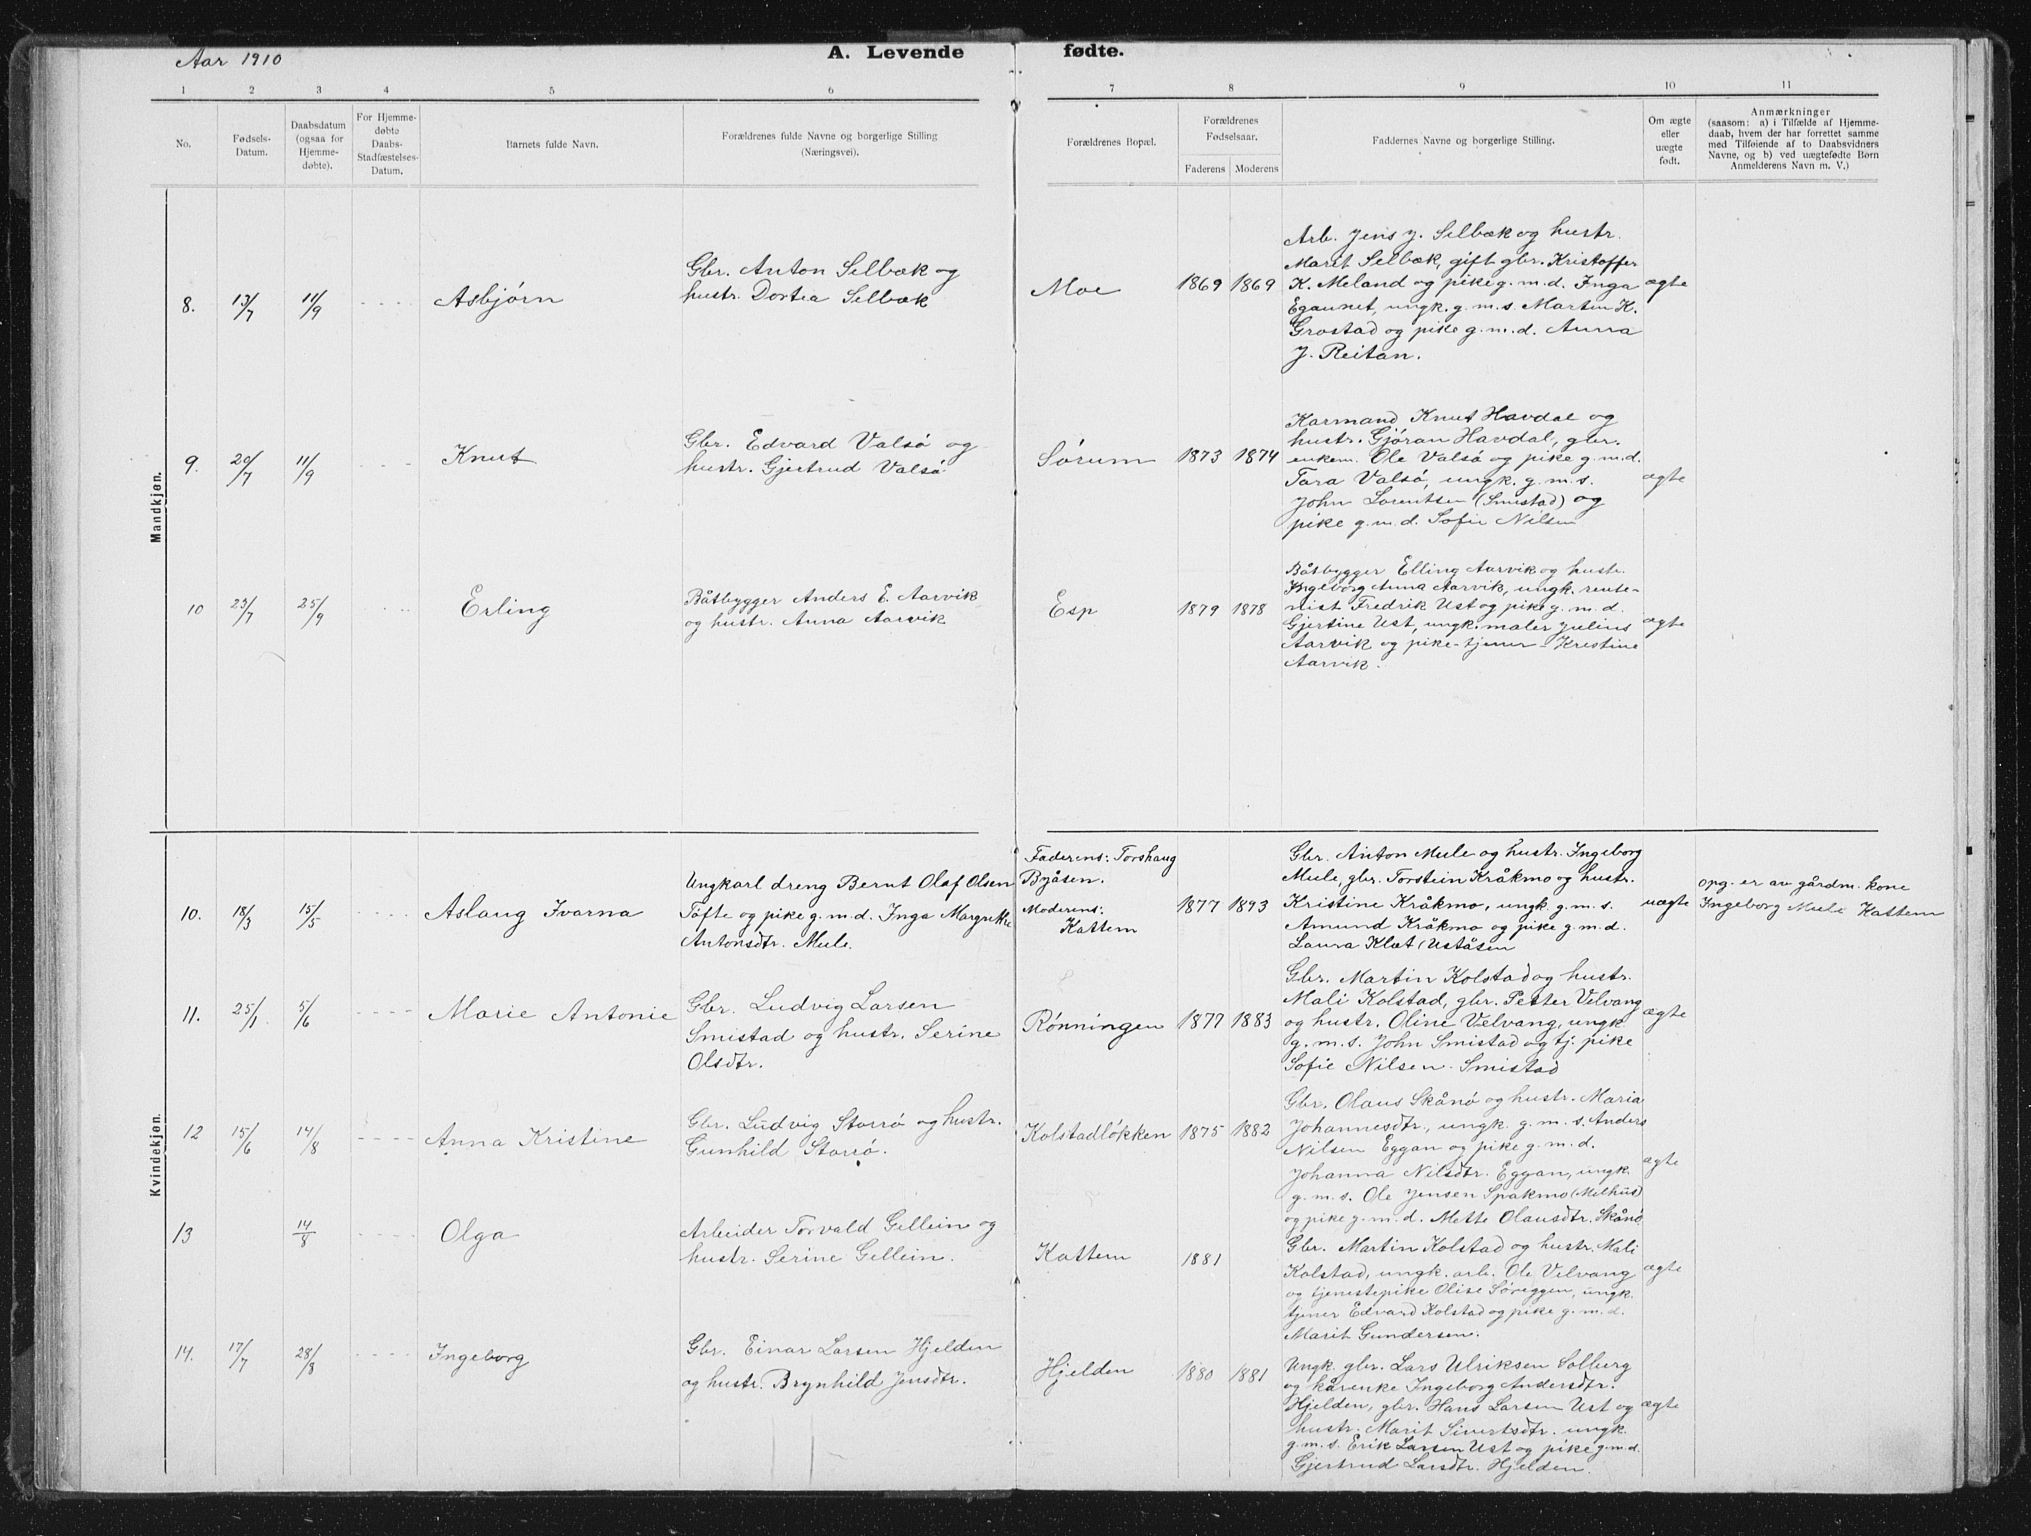 Aar 1910
A. Levende fødte.
1 2 3 4 5 6 7 8 9 10 11
No.
Fødsels-
Datum.
Daabsdatum
(ogsaa for
Hjemme-
døbte).
For Hjemme-
døbte
Daabs-
Stadfæstelses-
Datum.
Barnets fulde Navn.
Forældrenes fulde Navne og borgerlige Stilling
(Næringsvei).
Forældrenes Bopæl.
Forældrenes
Fødselsaar.
Faderens Moderens
Faddernes Navne og borgerlige Stilling.
Om ægte
eller
uægte
født.
Anmærkninger
(saasom: a) i Tilfælde af Hjemme-
daab, hvem der har forrettet samme
med Tilføiende af to Daabsvidners
Navne, og b) ved uægtefødte Børn
Anmelderens Navn m. V.)
Mandkjøn.
8. 13/7 11/9 Asbjørn
Gbr. Anton Selbæk og
hustr. Dortea Selbæk
Moe 1869 1869
Arb. Jens J. Selbæk og hustr.
Marit Selbæk, gift gbr. Kristoffer
K. Meland og pike g.m.d. Inga
Egaunet, ungk. g.m.s. Martin K.
Grostad og pike g.m.d. Anna
J. Reitan.
ægte
9. 20/7 11/9 Knut
Gbr. Edvard Valsø og
hustr. Gjertrud Valsø
Sørum 1873 1874
Karmand Knut Havdal og
hustr. Gjøran Havdal, gbr.
enkem. Ole Valsø og pike g.m.d.
Tara Valsø, ungk. g.m.s.
John Lorentsen (Smistad) og
pike g.m.d. Sofie Nilsen
ægte
10 23/7 25/9 Erling
Båtbygger Anders E. Aarvik
og hustr. Anna Aarvik
Esp 1879 1878
Båtbygger Elling Aarvik og hustr.
Ingeborg Anna Aarvik, ungk. rente-
nist Fredrik Ust og pike g.m.d.
Gjertine Ust, ungk. maler Julius
Aarvik og pike-tjener-Kristine
Aarvik.
ægte
Kvindekjøn.
10. 18/3 15/5 Aslaug Ivarna
Ungkarl dreng Bernt Olaf Olsen
Tøfte og pike g.m.d. Inga Margrethe
Antonsdtr. Mule.
Faderens: Torshaug
Byåsen.
Moderens:
Kattem
1877 1893
Gbr. Anton Mule og hustr. Ingeborg
Mule, gbr. Torstein Kråkmo og hustr.
Kristine Kråkmo, ungk. g.m.s.
Amund Kråkmo og pike g.m.d.
Laura Klæt (Uståsen
uægte
opg. er av gårdm. kone
Ingeborg Mule Kattem
11. 25/1 5/6 Marie Antonie
Gbr. Ludvig Larsen
Smistad og hustr. Serine
Olsdtr.
Rønningen 1877 1883
Gbr. Martin Kolstad og hustr.
Mali Kolstad, gbr. Petter Velvang
og hustr. Oline Velvang, ungk.
g.m.s. John Smistad og tj. pike
Sofie Nilsen Smistad
ægte
12 15/6 14/8 Anna Kristine
Gbr. Ludvig Storrø og hustr.
Gunhild Storrø.
Kolstadløkken 1875 1882
Gbr. Olaus Skånø og hustr. Maria
Johannesdtr., ungk. g.m.s. Anders
Nilsen Eggan og pike g.m.d.
Johanna Nilsdtr. Eggan, ungk.
g.m.s. Ole Jensen Spakmo (Melhus)
og pike g.m.d. Mette Olausdtr. Skånø.
ægte
13 14/8 Olga
Arbeider Torvald Gellein og
hustr. Serine Gellein.
Kattem 1881
Gbr. Martin Kolstad og hustr. Mali
Kolstad, ungk. arb. Ole Velvang
og tjenestepike Olise Søreggen, ungk.
tjener Edvard Kolstad og pike g.m.d.
Marit Gundersen.
ægte
14. 17/7 28/8 Ingeborg
Gbr. Einar Larsen Hjelden
og hustr. Brynhild Jensdtr.
Hjelden 1880 1881
Ungk. gbr. Lars Ulriksen Solberg
og kårenke Ingeborg Andersdtr.
Hjelden, gbr. Hans Larsen Ust og
hustr. Marit Sivertsdtr. ungk.
g.m.s. Erik Larsen Ust og pike g.m.d.
Gjertrud Larsdtr. Hjelden.
ægte